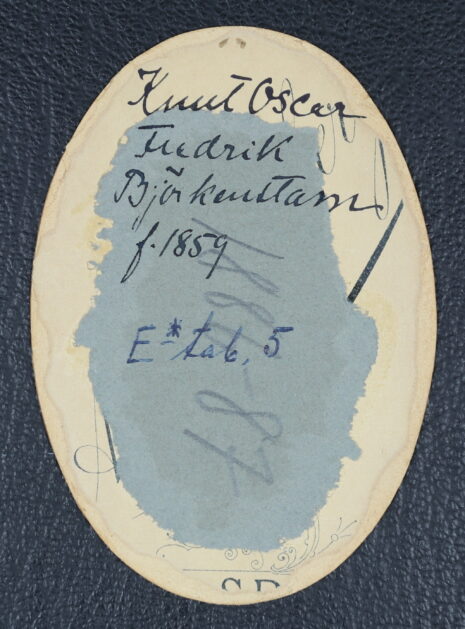 Knut Oscar
Fredrik
Björkenstam
f. 1859
E* tab. 5
87